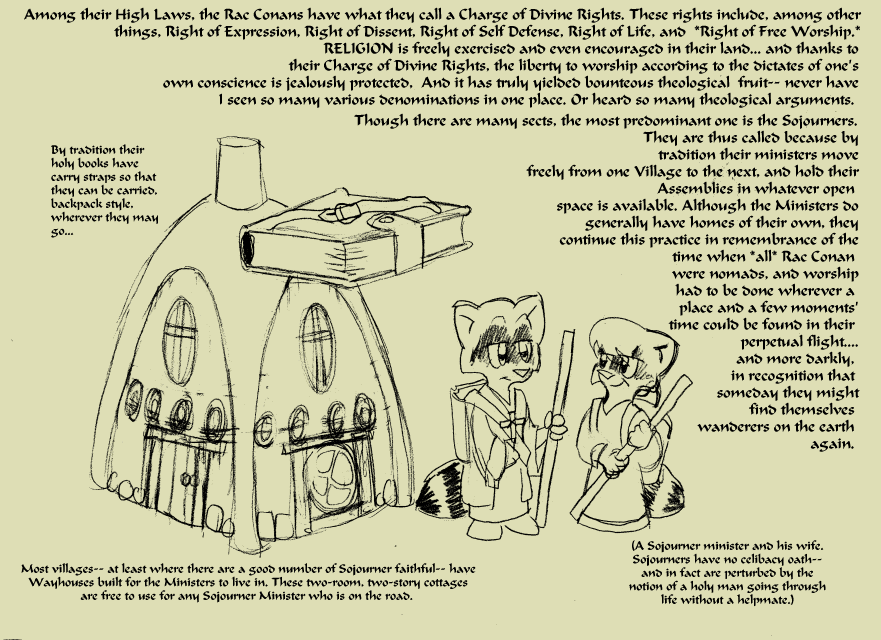 Among their High Laws, the Rac Conans have what they call a Charge of Divine Rights. These rights include, among other
things, Right of Expression, Right of Dissent, Right of Self Defense, Right of Life, and *Right of Free Worship.*
RELIGION is freely exercised and even encouraged in their land... and thanks to
their Charge of Divine Rights, the liberty to worship according to the dictates of one's
own conscience is jealously protected. And it has truly yielded bounteous theological fruit-- never have
I seen so many various denominations in one place. Or heard so many theological arguments.
Though there are many sects, the most predominant one is the Sojourners.
They are thus called because by
tradition their ministers move
freely from one Village to the next, and hold their
Assemblies in whatever open
space is available. Although the Ministers do
generally have homes of their own, they
continue this practice in remembrance of the
time when *all* Rac Conan
were nomads, and worship
had to be done wherever a
place and a few moments'
time could be found in their
perpetual flight....
and more darkly,
in recognition that
someday they might
find themselves
wanderers on the earth
again.
By tradition their
holy books have
carry straps so that
they can be carried,
backpack style,
wherever they may
go...
Most villages-- at least where there are a good number of Sojourner faithful-- have
Wayhouses built for the Ministers to live in. These two-room, two-story cottages
are free to use for any Sojourner Minister who is on the road.
(A Sojourner minister and his wife.
Sojourners have no celibacy oath--
and in fact are perturbed by the
notion of a holy man going through
life without a helpmate.)